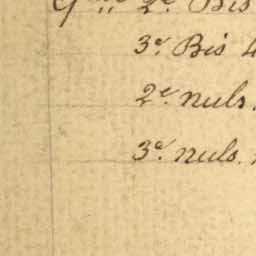 2e. Bis
3e. Bis
2e. nuls.
3e. nuls.